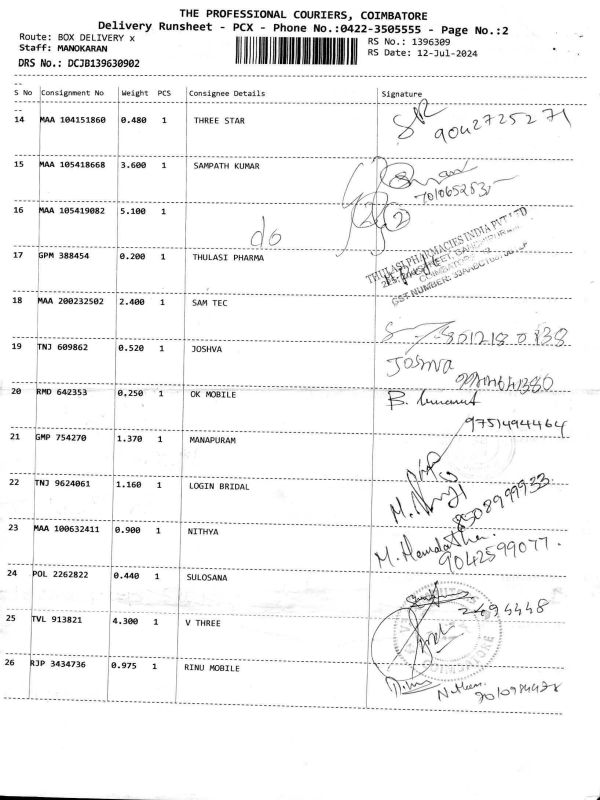 THE PROFESSIONAL COURIERS, COIMBATORE
Delivery Runsheet - PCX - Phone No.:0422-3505555 - Page No.:2
Route: BOX DELIVERY x
RS No.: 1396309
Staff: MANOKARAN
RS Date: 12-Jul-2024
DRS No.: DCJB139630902
S No Consignment No Weight PCS Consignee Details Signature
14 MAA 104151860 0.480 1 THREE STAR
9042725271
15 MAA 105418668 3.600 1 SAMPATH KUMAR
16 MAA 105419082 5.100 1
do
2
17 GPM 388454 0.200 1 THULASI PHARMA
THULASI PHARMACIES INDIA PVT LTD
GST NUMBER:
18 MAA 200232502 2.400 1 SAM TEC
19 TNJ 609862 0.520 1 JOSHVA
Joshva
20 RMD 642353 0.250 1 OK MOBILE
B.
9751494464
21 GMP 754270 1.370 1 MANAPURAM
22 TNJ 9624061 1.160 1 LOGIN BRIDAL
M.
8508999933
23 MAA 100632411 0.900 1 NITHYA
M. Hemalatha.
9042599077.
24 POL 2262822 0.440 1 SULOSANA
2494448
25 TVL 913821 4.300 1 V THREE
COIMBATORE
26 RJP 3434736 0.975 1 RINU MOBILE